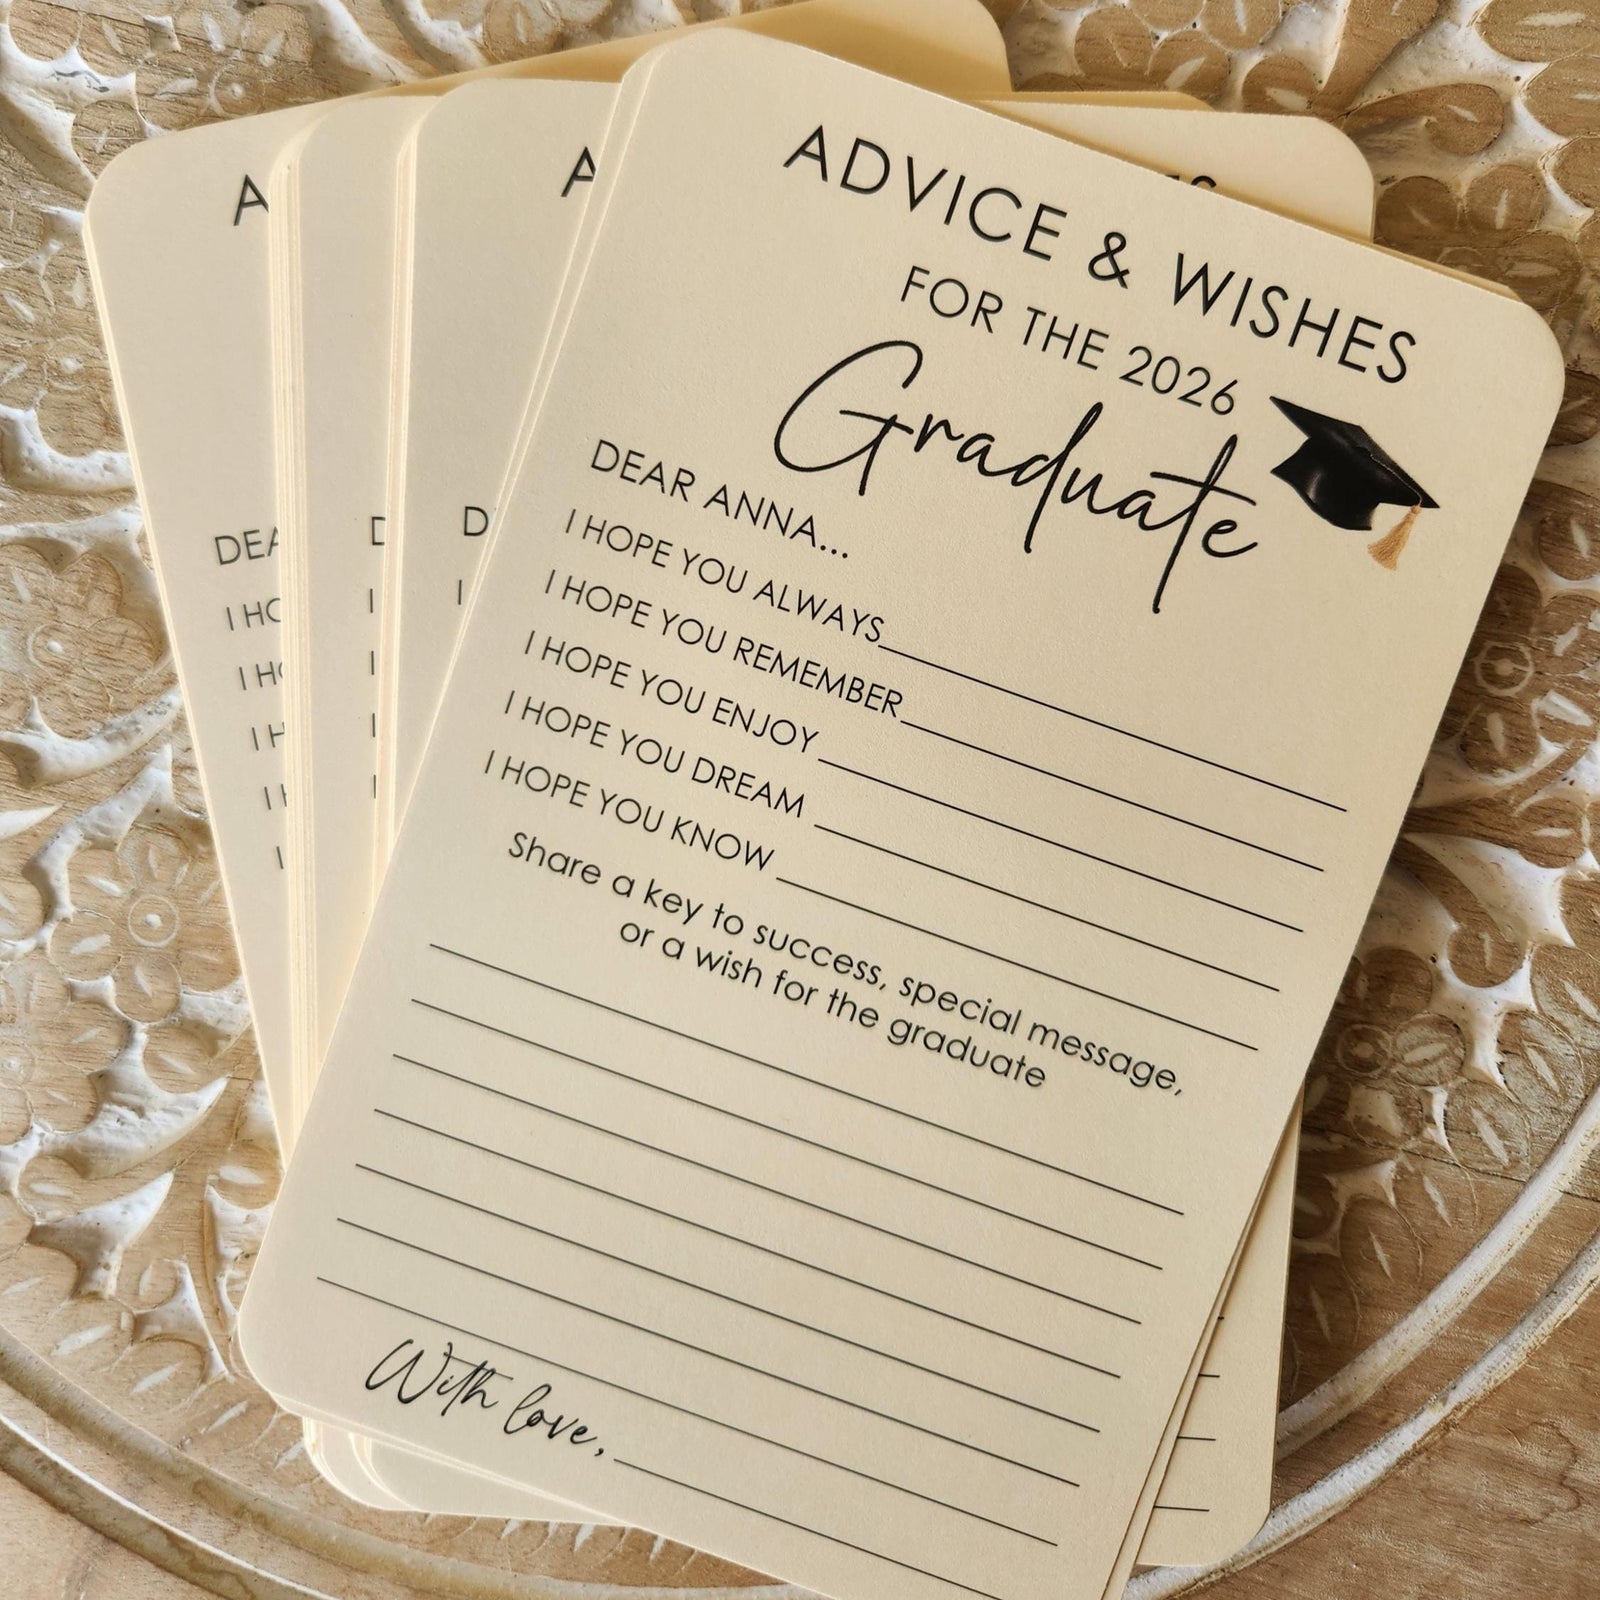 ADVICE & WISHES
FOR THE 2026
Graduate
DEAR ANNA...
I HOPE YOU ALWAYS
I HOPE YOU REMEMBER
I HOPE YOU ENJOY
I HOPE YOU DREAM
I HOPE YOU KNOW
Share a key to success, special message,
or a wish for the graduate
With love,